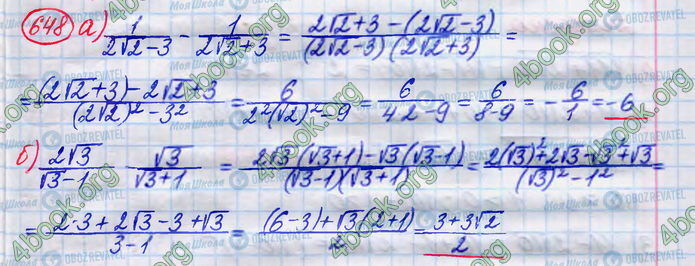 648 а) 1/(2√2-3) - 1/(2√2+3) = (2√2+3-(2√2-3))/((2√2-3)(2√2+3)) =
= ((2√2+3)-2√2+3)/((2√2)²-3²) = 6/(2²(√2)²-9) = 6/(4·2-9) = 6/(8-9) = -6/1 = -6
б) 2√3/(√3-1) - √3/(√3+1) = (2√3(√3+1)-√3(√3-1))/((√3-1)(√3+1)) = (2(√3)²+2√3-√3²+√3)/((√3)²-1²) =
= (2·3+2√3-3+√3)/(3-1) = ((6-3)+√3(2+1))/2 = (3+3√2)/2